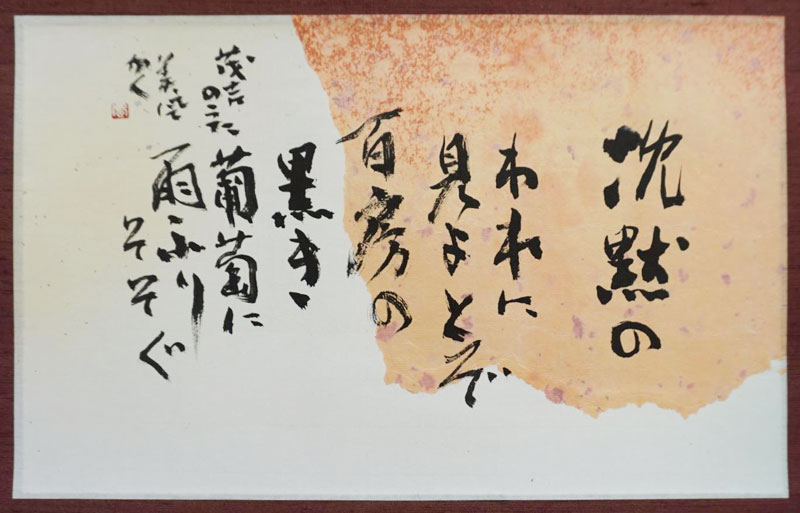 沈黙の
われに
見よとぞ
百房の
黒き
葡萄に
雨ふり
そそぐ
茂吉のうた
美風
かく